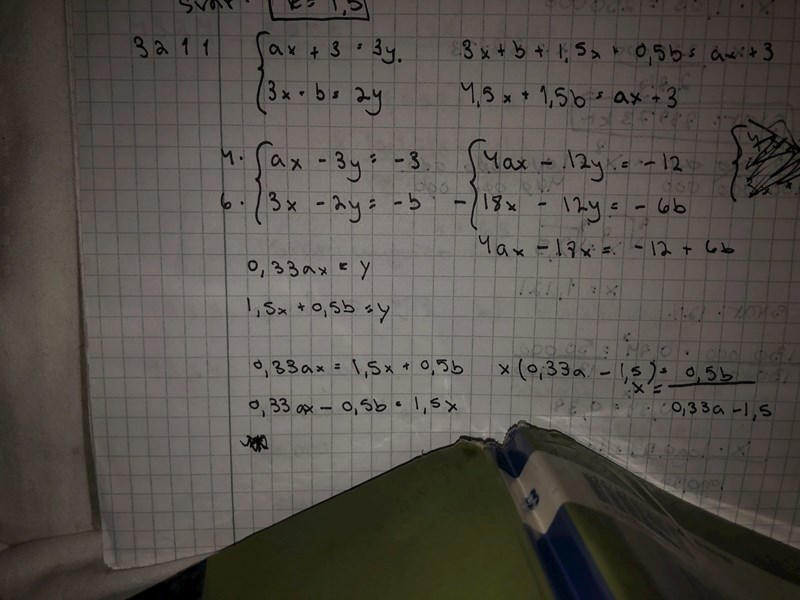 Svar: k = 1,5
3211 ax + 3 = 3y. 3x + b + 1,5x + 0,5b = ax + 3
3x + b = 2y 4,5x + 1,5b = ax + 3
4. ax - 3y = -3 4ax - 12y = -12
6. 3x - 2y = -b - 18x - 12y = -6b
4ax - 18x = -12 + 6b
0,33ax = y
1,5x + 0,5b = y
0,33ax = 1,5x + 0,5b x(0,33a - 1,5) = 0,5b
x =
0,33ax - 0,5b = 1,5x 0,33a - 1,5